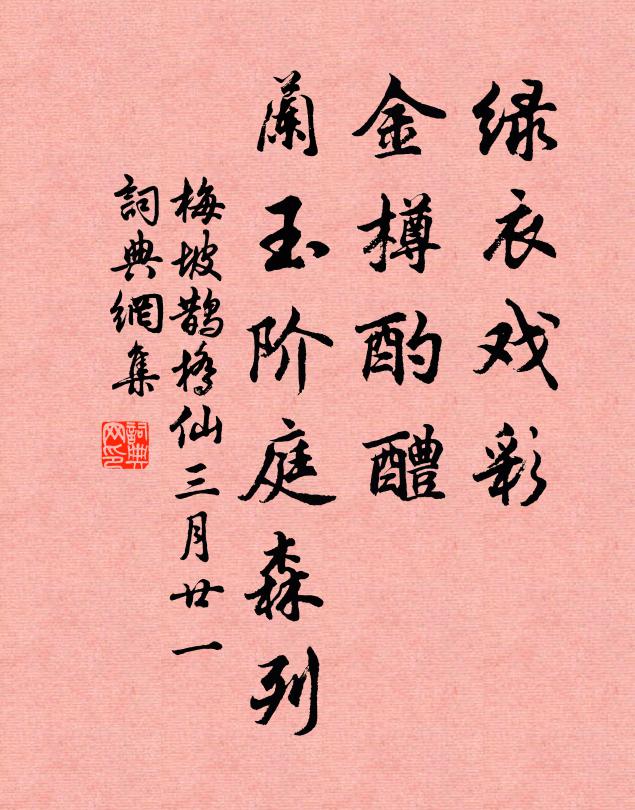 绿衣戏彩
金樽酌醴
蘭玉阶庭森列
梅坡鹊橋仙三月廿一
詞典網集
詞典网印